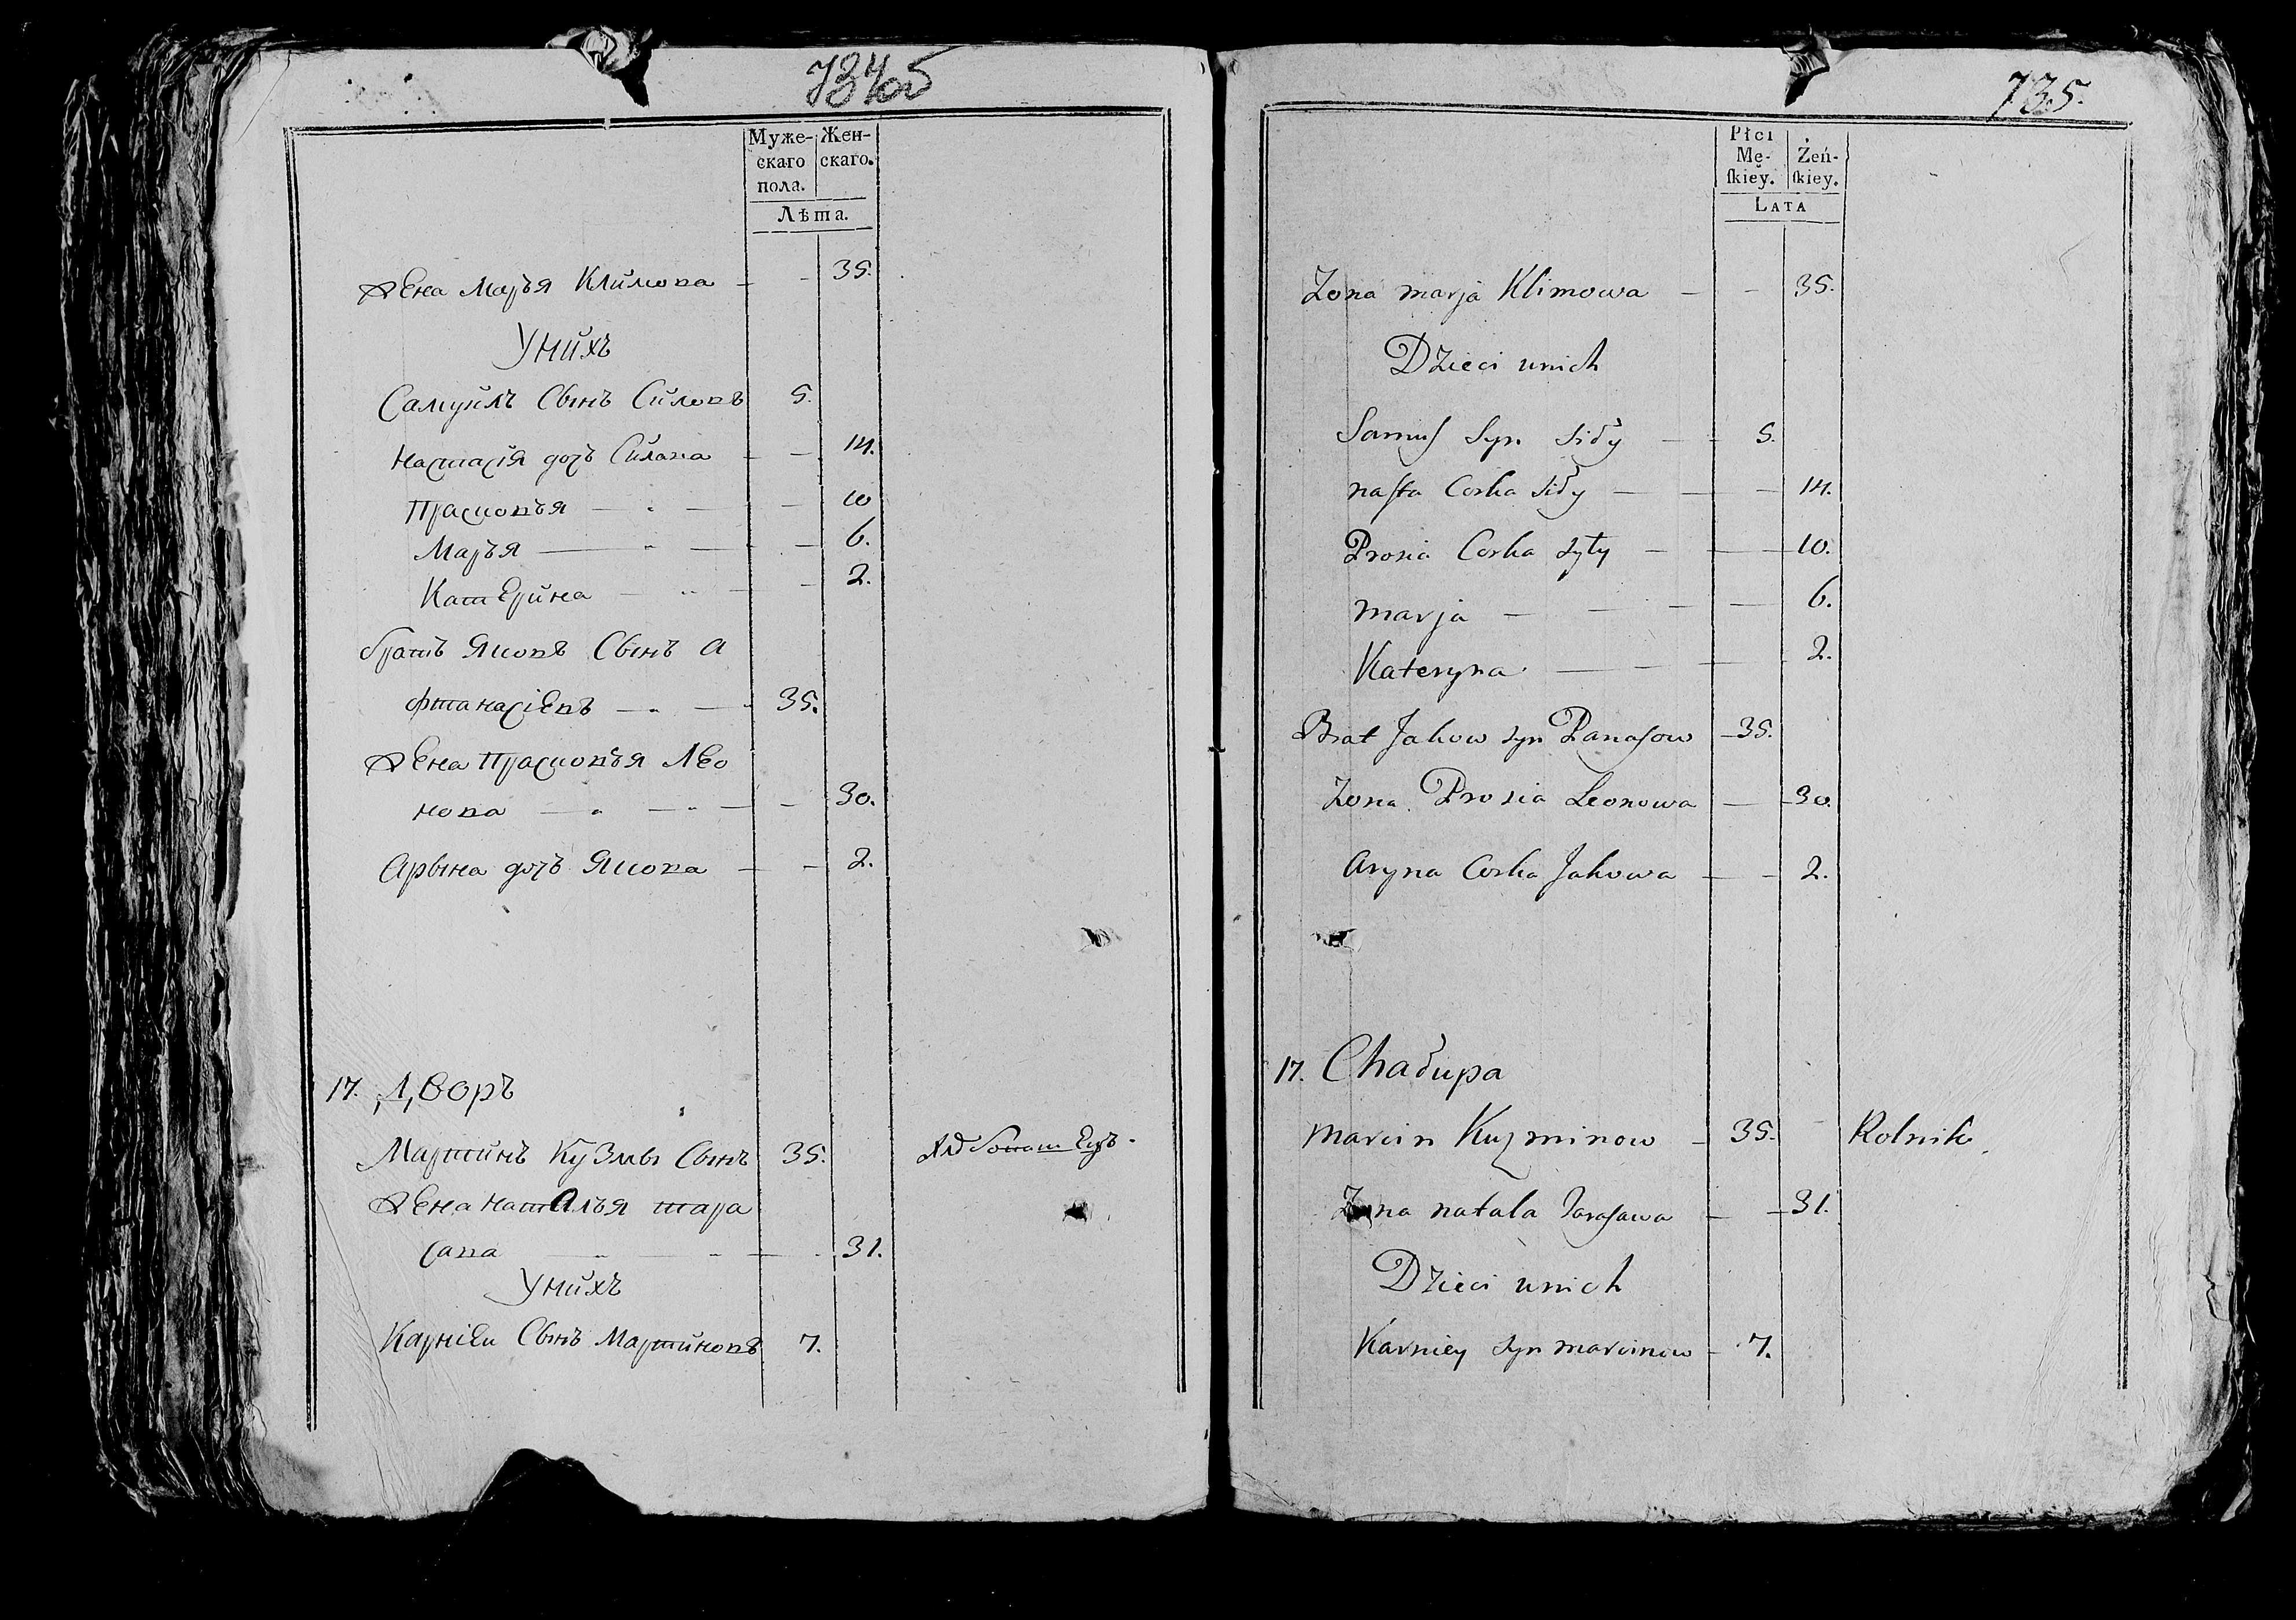 734об
Муже- Жен-
скаго скаго.
пола.
Лѣта.
Жена Марья Климова — – 35.
У нихъ
Самуилъ Сынъ Силовъ 5.
Настасія дочь Силова — — 14.
Прасковья — — — 10
Марья — — — 6.
Катерина — — – 2.
братъ Яковъ Сынъ А
фтанасіевъ — — 35.
Жена Прасковья Лео
нова — — — – 30.
Арына дочь Якова — – 2.
17. Дворъ
Мартинъ Кузмы Сынъ 35. Хлебопашецъ.
Жена Наталья Тара
сава — — — 31.
У нихъ
Карніей Сынъ Мартиновъ 7.
735.
Płci
Mę- Żeń-
ſkiey. ſkiey.
LATA
Zona marja Klimowa — – 35.
Dzieci unich
Samuſ Syn Siły — – 5.
naſta Corka Siły — — – 14.
Prosia Corka Syły — — 10.
marja — — — — 6.
Kateryna — — — 2.
Brat Jakow syn Panaſow – 35.
Zona Prosia Leonowa — – 30.
Aryna Corka Jakowa — – 2.
17. Chałupa
marcin Kuzminow – 35. Rolnik.
Zona natala Taraſawa – – 31.
Dzieci unich
Karniey syn marcinow – 7.